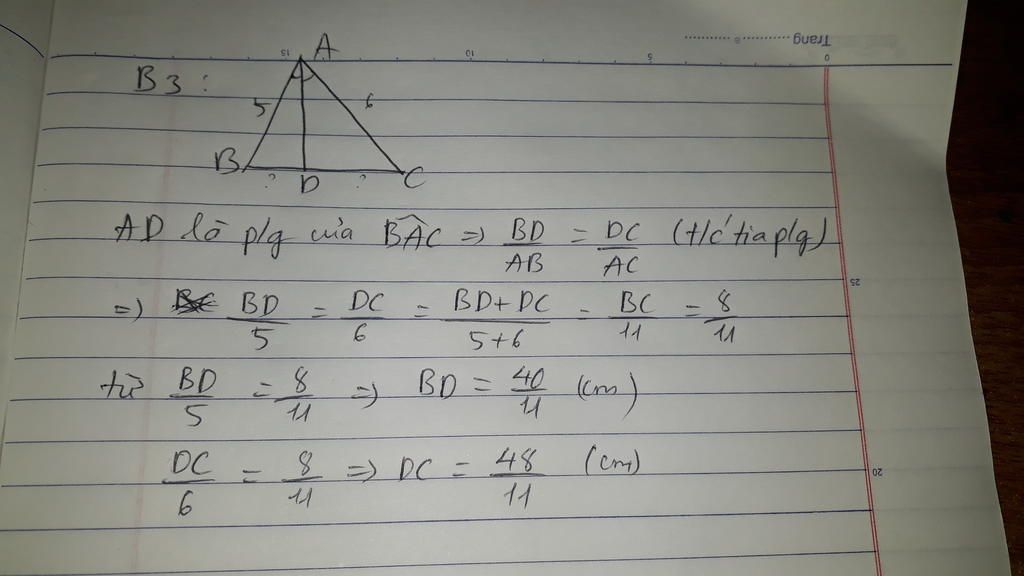 Trang
0 5 10 15
B3:
A
5 6
B ? D ? C
AD là p/g của BAC => BD/AB = DC/AC (t/c tia p/g)
=> BD/5 = DC/6 = BD+DC/5+6 = BC/11 = 8/11
từ BD/5 = 8/11 => BD = 40/11 (cm)
DC/6 = 8/11 => DC = 48/11 (cm)
25
20